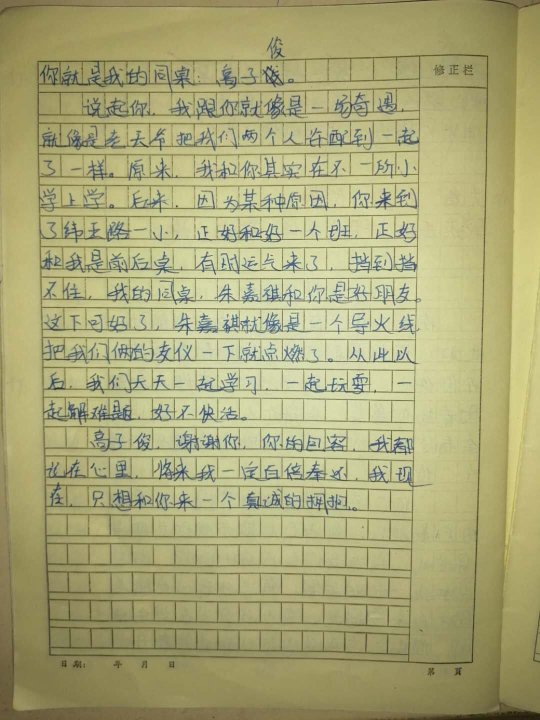 俊
你就是我的同桌：高子俊。
修正栏
说起你，我跟你就像是一场奇遇，
就像是老天爷把我们两个人许配到一起
了一样。原来，我和你其实在不一所小
学上学。后来，因为某种原因，你来到
了纬五路一小，正好和好一个班，正好
和我是前后桌，有时运气来了，挡到挡
不住，我的同桌，朱嘉祺和你是好朋友。
这下可好了，朱嘉祺就像是一个导火线，
把我们俩的友仪一下就点燃了。从此以
后，我们天天一起学习，一起玩耍，一
起解难题，好不快活。
高子俊，谢谢你，你的包容，我都
记在心里，将来我一定百倍奉还，我现
在，只想和你来一个真诚的拥抱。
日期： 年 月 日 第 页